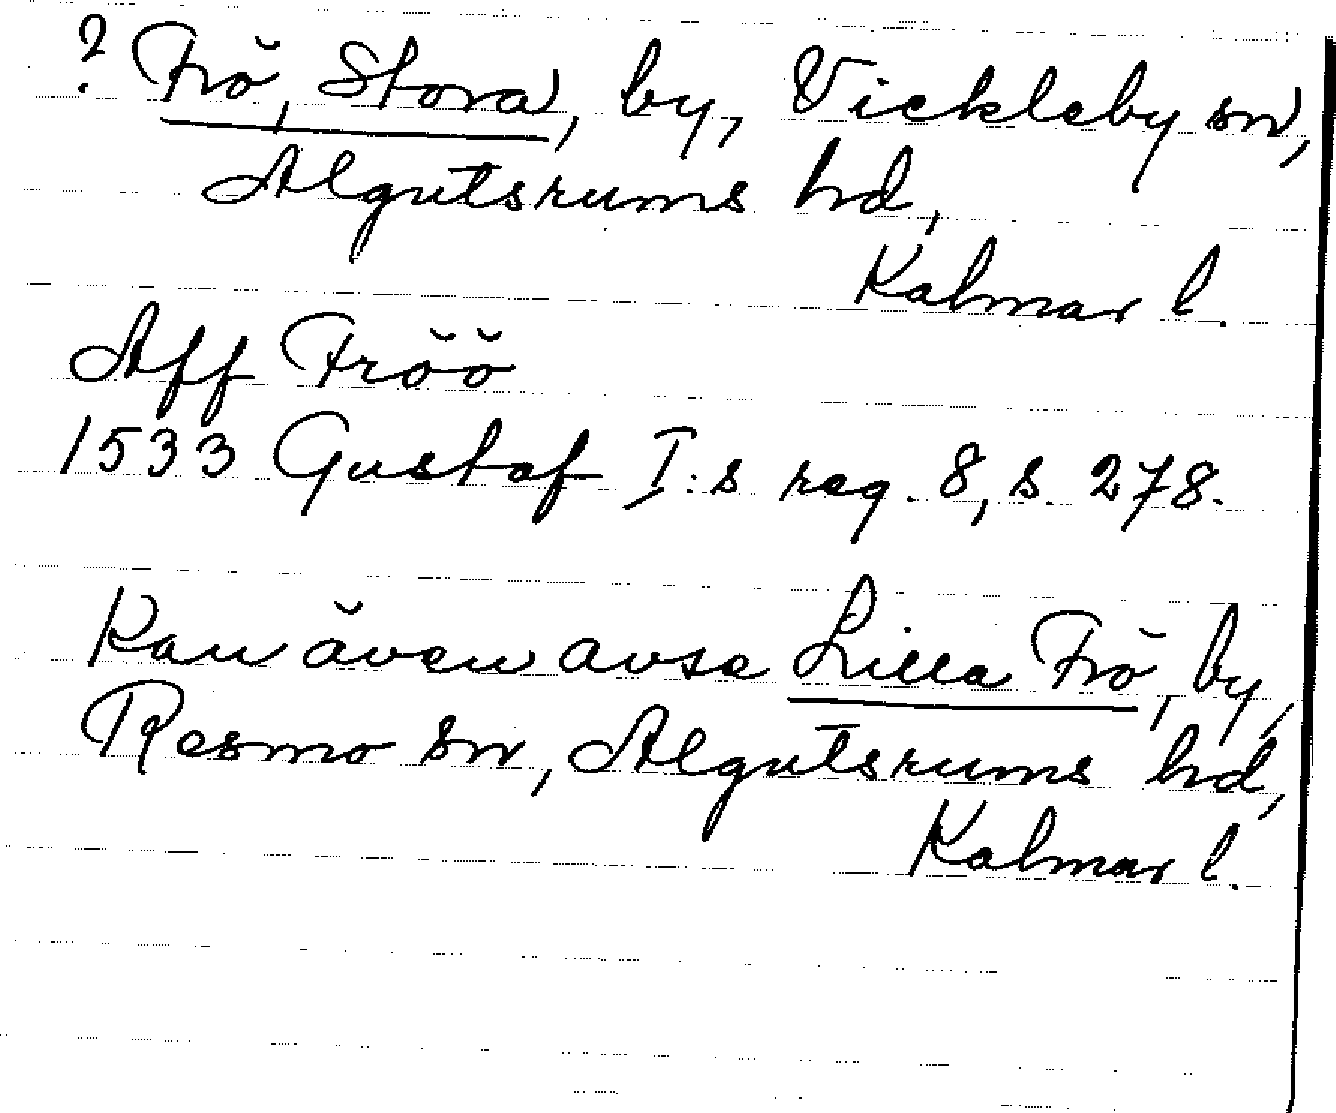 ? Frö, Stora, by, Vickleby sn,
Algutsrums hd,
Kalmar l.
Aff Fröö
1533 Gustaf I:s reg. 8, s. 278.
Kan även avse Lilla Frö, by,
Resmo sn, Algutsrums hd,
Kalmar l.